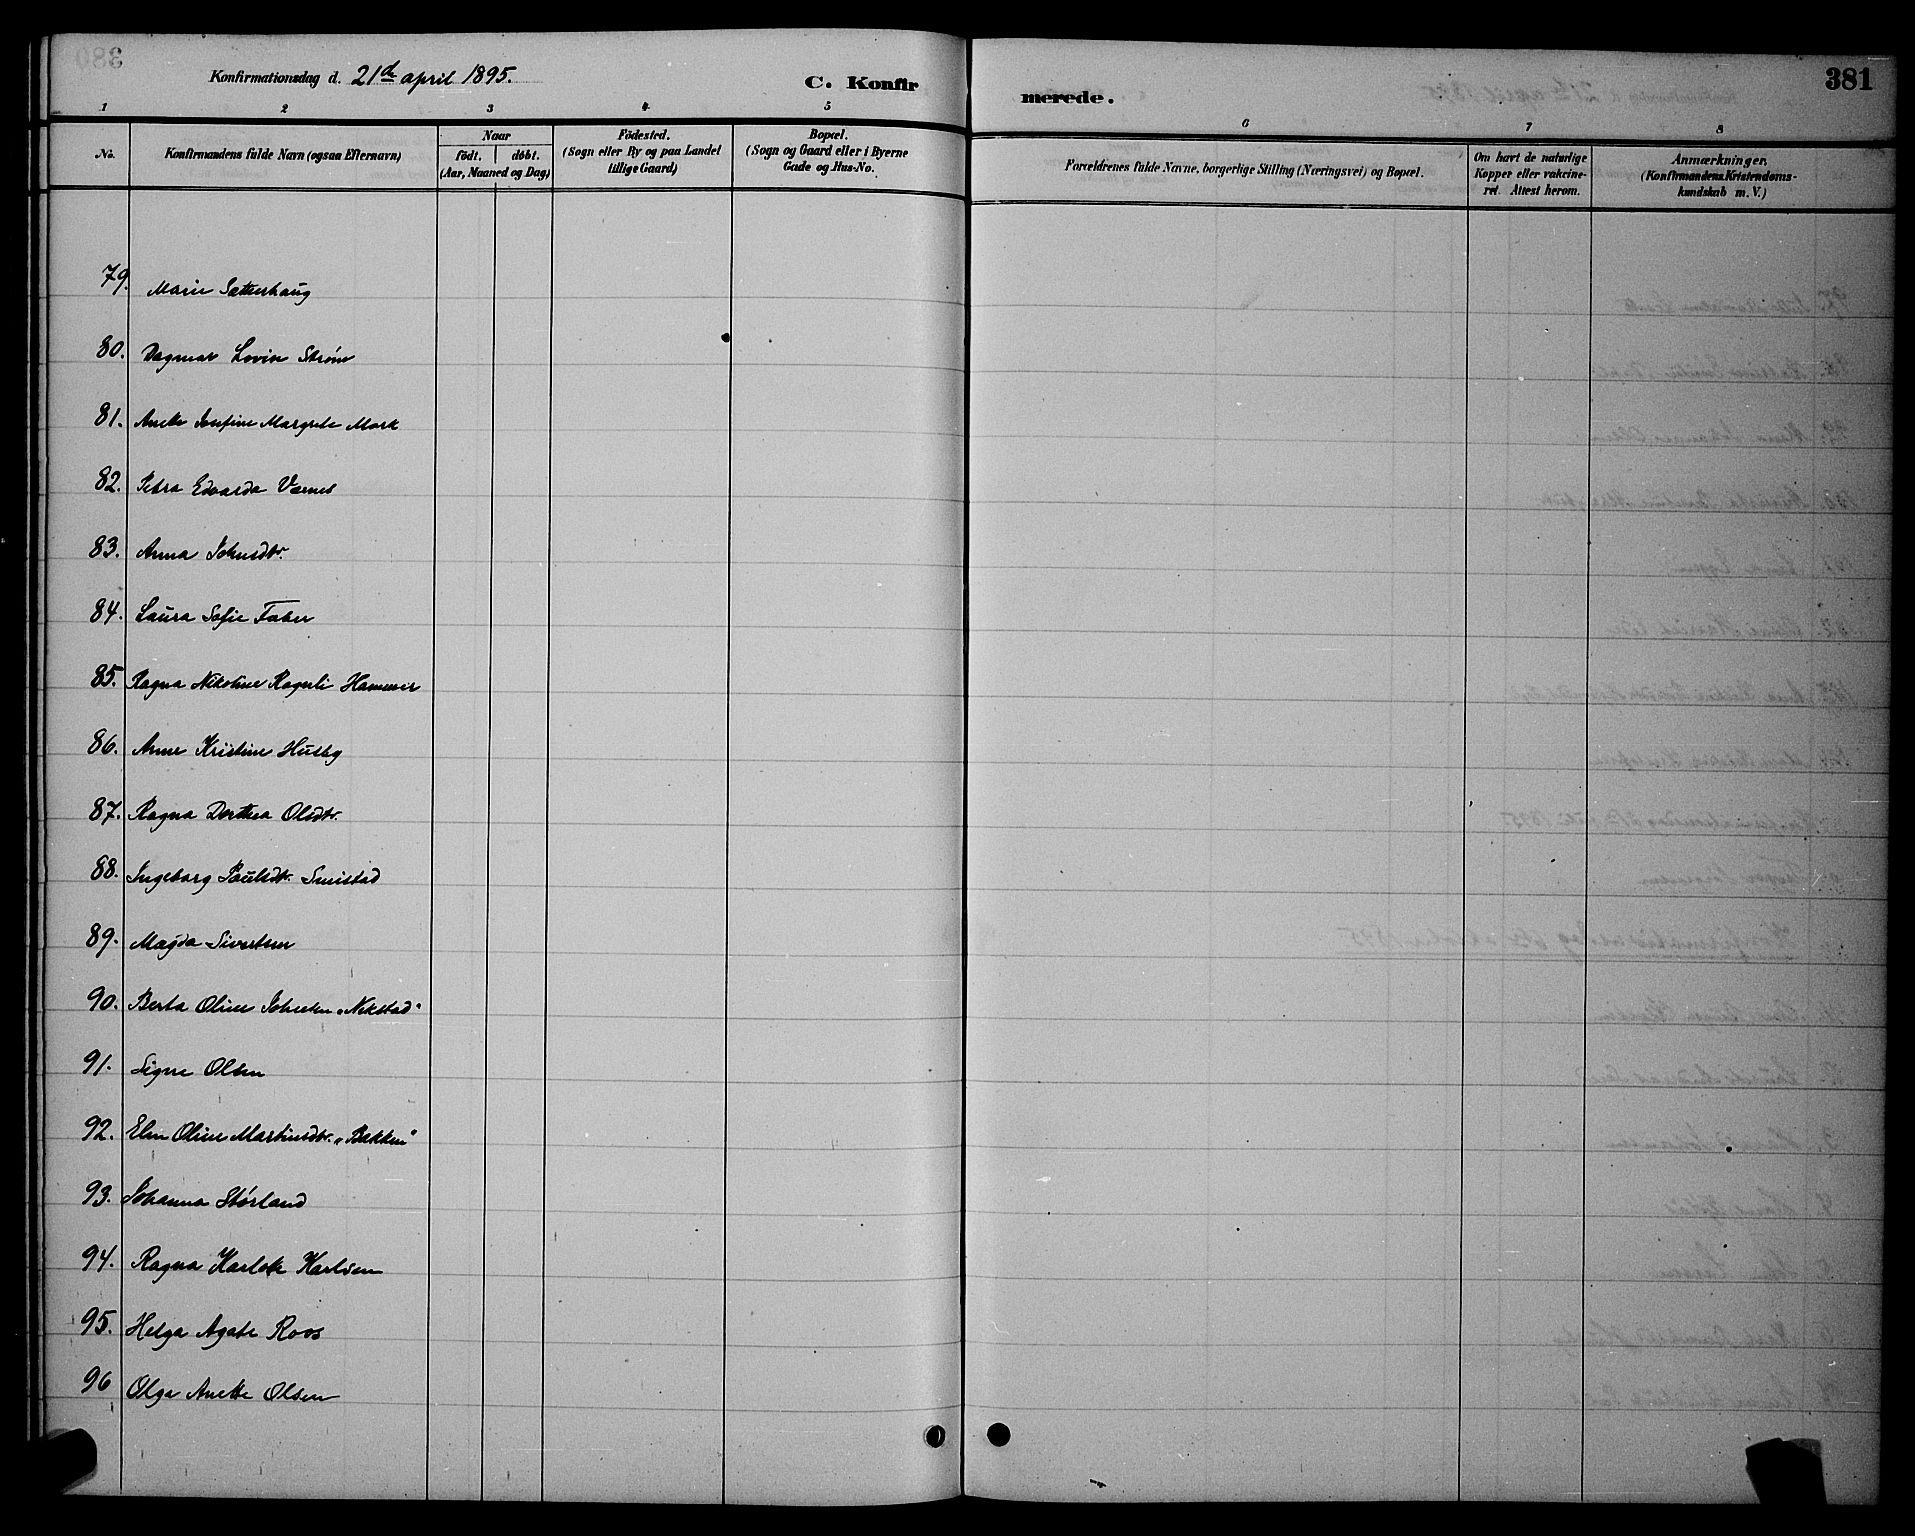 Konfirmationsdag d. 21de april 1895.
C. Konfirmerede.
381
1 2 3 4 5 6 7 8
No.
Konfirmandens fulde Navn (ogsaa Efternavn)
Naar
födt. döbt.
(Aar, Maaned og Dag)
Födested.
(Sogn eller By og paa Landet
tillige Gaard)
Bopæl.
(Sogn og Gaard eller i Byerne
Gade og Hus-No.
Forældrenes fulde Navne, borgerlige Stilling (Næringsvei) og Bopæl.
Om havt de naturlige
Kopper eller vakcine-
ret. Attest herom.
Anmærkninger,
(Konfirmandens Kristendoms-
kundskab m. V.)
79. Marie Sætterhaug
80. Dagmar Lovise Strøm
81. Anette Josefine Margrete Mork
82. Petra Edvarda Værnes
83. Anna Johnsdtr.
84. Laura Sofie Faber
85. Ragna Nikoline Hammer
86. Anne Kristine Husby
87. Ragna Dorthea Olsdtr.
88. Ingeborg Paulsdtr. Smistad
89. Magda Sivertsen
90. Berta Oline Johnsen „Nekstad"
91. Signe Olsen
92. Elen Oline Martinsdtr. „Bakken"
93. Johanna Størland
94. Ragna Karlsen
95. Helga Agate Roos
96 Olga Anette Olsen